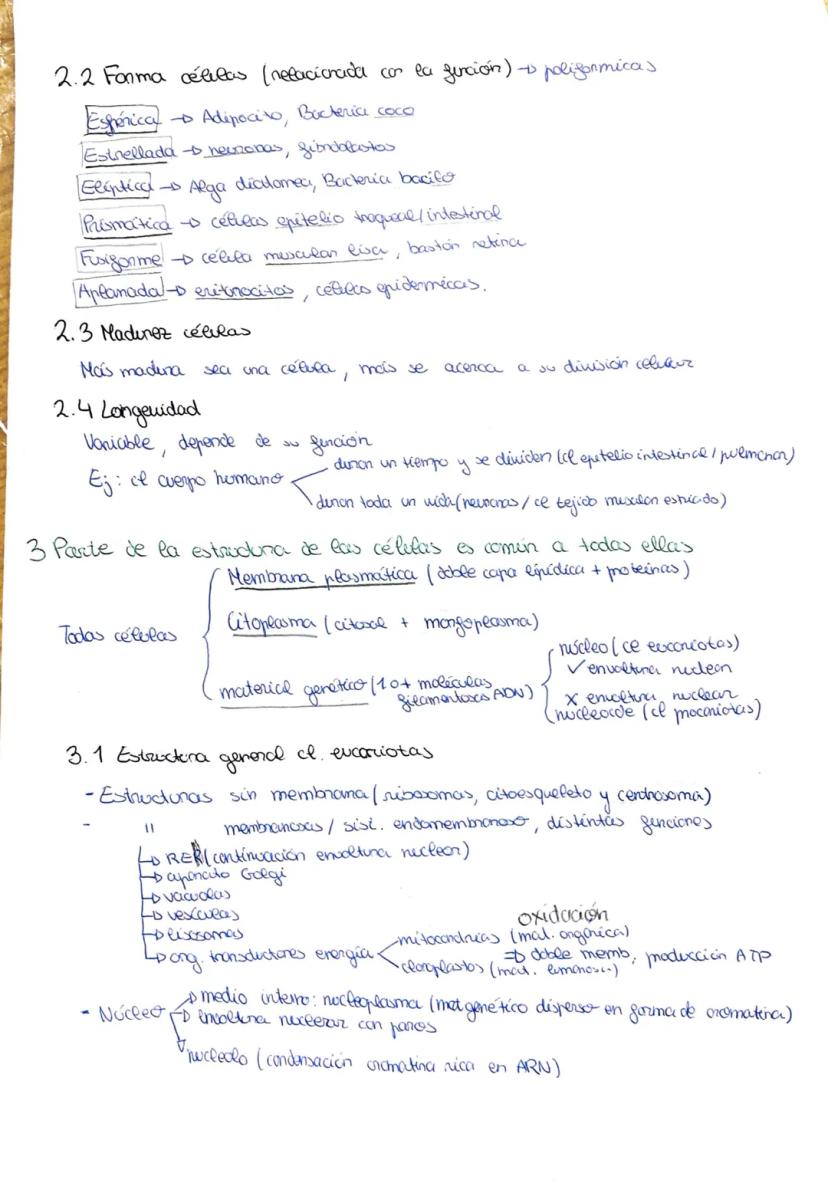 2.2 Forma células (relacionada con la función) → poliformicas
Esférica → Adipocito, Bacteria coco
Estrellada → neuronas, fibroblastos
Elíptica → Alga diatomea, Bacteria bacilo
Prismática → células epitelio traqueal/intestinal
Fusiforme → célula muscular lisa, bastón retina
Aplanada → eritrocitos, células epidermicas.
2.3 Madurez células
Más madura sea una célula, más se acerca a su división celular
2.4 Longevidad
Variable, depende de su función
duran un tiempo y se dividen (cl epitelio intestinal / pulmonar)
Ej: cl cuerpo humano
duran toda un vida (neuronas / cl tejido muscular estriado)
3 Parte de la estructura de las células es común a todas ellas
Membrana plasmática (doble capa lipídica + proteínas)
Todas células
Citoplasma (citosol + morfoplasma)
material genético (1 o + moléculas filamentosas ADN)
núcleo (cl eucariotas)
✓ envoltura nuclear
x envoltura nuclear
nucleoide (cl procariotas)
3.1 Estructura general cl. eucariotas
- Estructuras sin membrana (ribosomas, citoesqueleto y centrosoma)
- " membranosas / sist. endomembranoso, distintas funciones
↳ RER (continuación envoltura nuclear)
→ aparato Golgi
→ vacuolas
→ vesículas
→ lisosomas
↳ org. transductores energía
oxidación
mitocondrias (mat. orgánica)
⇒ doble memb, producción ATP
cloroplastos (mat. luminosa)
- Núcleo
→ medio interno: nucleoplasma (mat genético disperso en forma de cromatina)
→ envoltura nuclear con poros
nucleolo (condensación cromatina rica en ARN)